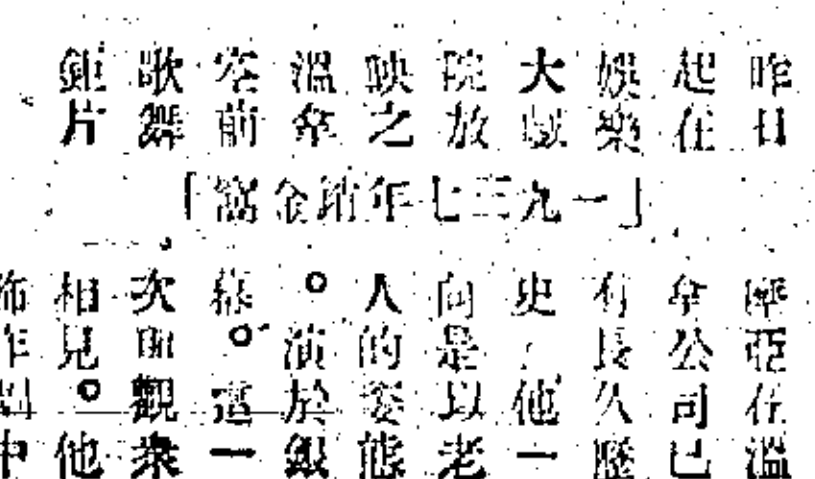 昨日
起在
娛樂
大戲
院放
映之
溫拿
空前
歌舞
鉅片
「一九三七年銷金窩」
亞在溫
拿公司已
有長久歷
史，他一
向是以老
人的姿態
。演於銀
幕。這一
次觀衆
相見。他
飾作劇中